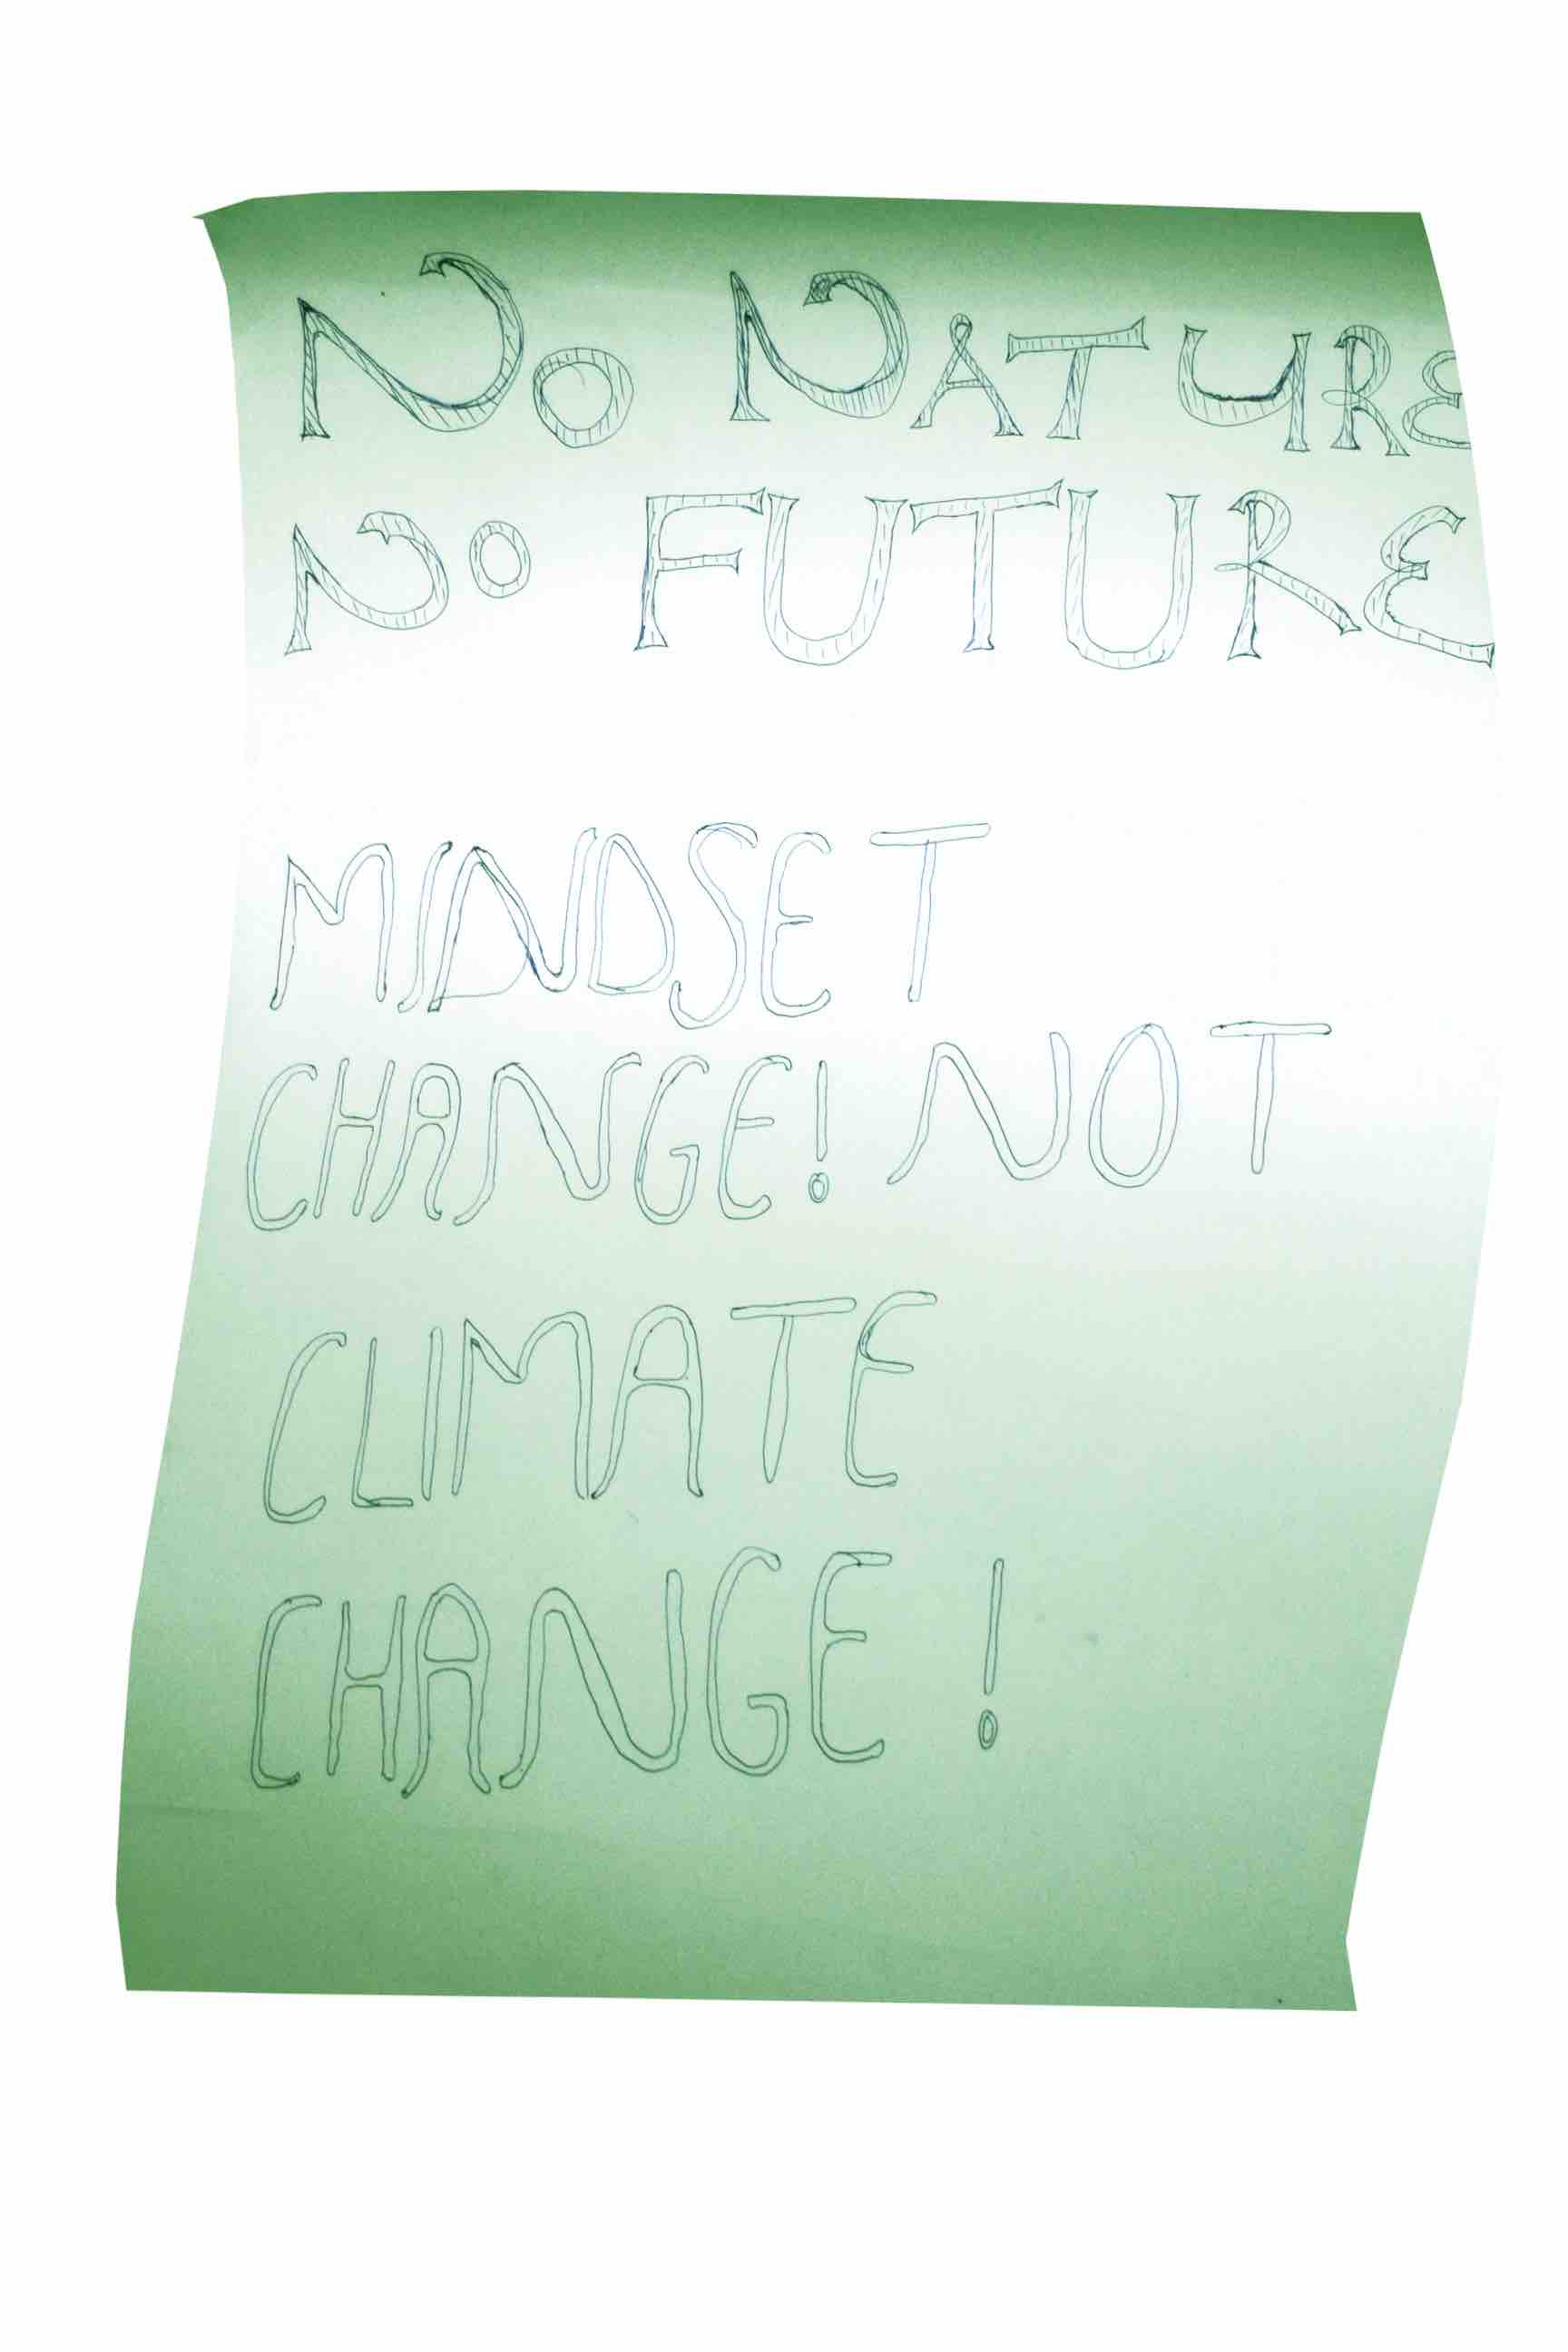 No NATURE
No FUTURE
MINDSET
CHANGE! NOT
CLIMATE
CHANGE!